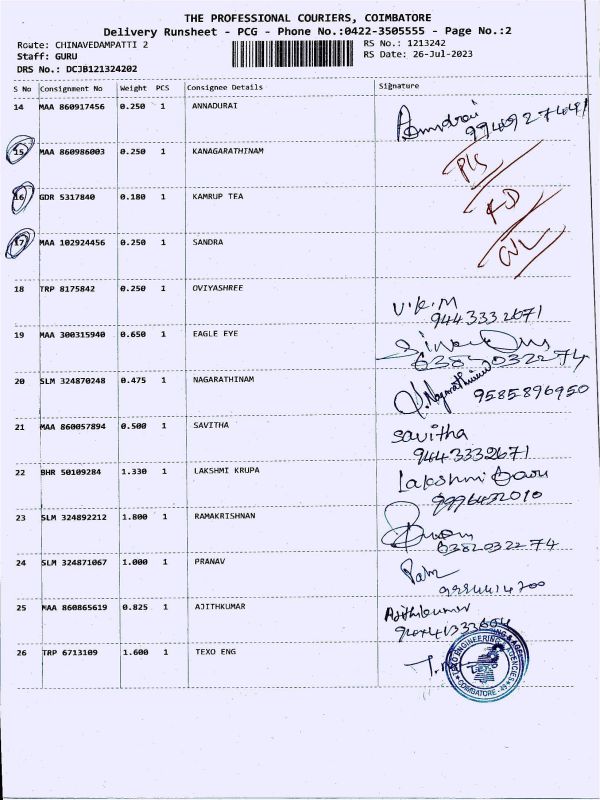 THE PROFESSIONAL COURIERS, COIMBATORE
Delivery Runsheet - PCG - Phone No.:0422-3505555 - Page No.:2
Route: CHINAVEDAMPATTI 2
Staff: GURU
DRS No.: DCJB121324202
RS No.: 1213242
RS Date: 26-Jul-2023
S No Consignment No Weight PCS Consignee Details Signature
14 MAA 860917456 0.250 1 ANNADURAI
15 MAA 860986003 0.250 1 KANAGARATHINAM
16 GDR 5317840 0.180 1 KAMRUP TEA
17 MAA 102924456 0.250 1 SANDRA
18 TRP 8175842 0.250 1 OVIYASHREE
V.K.M
9443332671
19 MAA 300315940 0.650 1 EAGLE EYE
6382032274
20 SLM 324870248 0.475 1 NAGARATHINAM
9585896950
21 MAA 860057894 0.500 1 SAVITHA
savitha
9443332671
22 BHR 50109284 1.330 1 LAKSHMI KRUPA
Lakshmi
23 SLM 324892212 1.800 1 RAMAKRISHNAN
6382032274
24 SLM 324871067 1.000 1 PRANAV
25 MAA 860865619 0.825 1 AJITHKUMAR
Ajithkumar
26 TRP 6713109 1.600 1 TEXO ENG
TEXO ENGINEERING & AGENCIES
COIMBATORE